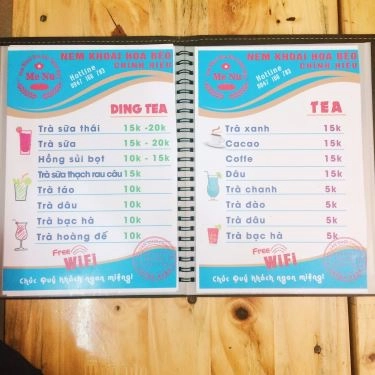 Me Nu
NEM KHOAI HOA BÉO
CHÍNH HIỆU
Hotline
DING TEA
Trà sữa thái 15k -20k
Trà sữa 15k - 20k
Hồng sủi bọt 10k - 15k
Trà sữa thạch rau câu 15k
Trà táo 10k
Trà dâu 10k
Trà bạc hà 10k
Trà hoàng đế 10k
Free
WiFi
Chúc Quý khách ngon miệng!
Me Nu
NEM KHOAI HOA BÉO
CHÍNH HIỆU
Hotline
TEA
Trà xanh 15k
Cacao 15k
Coffe 15k
Dâu 15k
Trà chanh 5k
Trà đào 5k
Trà dâu 5k
Trà bạc hà 5k
Free
WiFi
Chúc Quý khách ngon miệng!